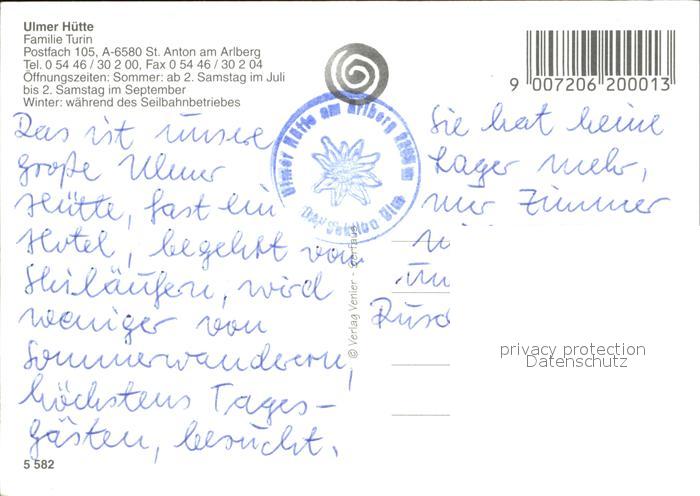 Ulmer Hütte
Familie Turin
Postfach 105, A-6580 St. Anton am Arlberg
Tel. 0 54 46 / 30 2 00, Fax 0 54 46 / 30 2 04
Öffnungszeiten: Sommer: ab 2. Samstag im Juli
bis 2. Samstag im September
Winter: während des Seilbahnbetriebes
9 007206 200013
Ulmer Hütte am Arlberg
Das ist unsere
große Ulmer
Hütte, fast ein
Hotel, begehrt von
Skiläufern, wird
weniger von
Sommerwanderern,
höchstens Tages-
gästen, besucht.
Sie hat keine
Lager mehr,
nur Zimmer
© Verlag Venier -
privacy protection
Datenschutz
5 582